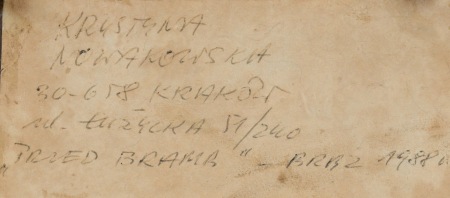 KRYSTYNA
NOWAKOWSKA
30-658 KRAKÓW
ul. ŁUŻYCKA 51/240
„PRZED BRAMĄ" - BRĄZ 1988 r.